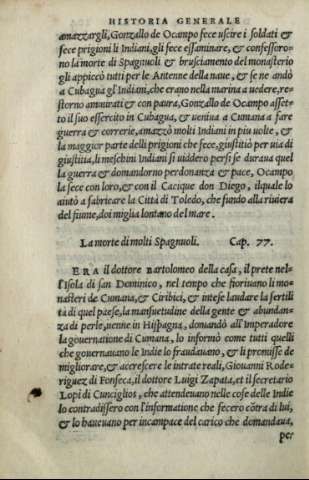 HISTORIA GENERALE
amazzargli, Gonzallo de Ocampo fece uscire i soldati &
fece prigioni li Indiani, gli fece essaminare, & confessoro-
no la morte di Spagnuoli & brusciamento del monasterio
gli appiccò tutti per le Antenne della naue, & se ne andò
a Cubagua gl'Indiani, che erano nella marina a uedere, re-
storno ammirati & con paura, Gonzallo de Ocampo asset-
to il suo essercito in Cubagua, & ueniua a Cumana a fare
guerra & correrie, amazzò molti Indiani in piu uolte, &
la maggior parte delli prigioni che fece, giustitiò per uia di
giustitia, li meschini Indiani si uiddero persi se duraua quel
la guerra & domandorno perdonanza & pace, Ocampo
la fece con loro, & con il Cacique don Diego, il quale lo
aiutò a fabricare la Città di Toledo, che fundo alla riuiera
del fiume, doi miglia lontano del mare.
La morte di molti Spagnuoli. Cap. 77.
ERA il dottore Bartolomeo della casa, il prete nel-
l'Isola di san Dominico, nel tempo che fioriuano li mo-
nasteri de Cumana, & Ciribici, & intese laudare la fertili
tà di quel paese, la mansuetudine della gente & abundan-
za di perle, uenne in Hispagna, domandò all'Imperadore
la gouernatione di Cumana, lo informò come tutti quelli
che gouernauano le Indie lo fraudauano, & li promisse de
migliorare, & accrescere le intrate reali, Giouanni Rode-
riguez di Fonseca, il dottore Luigi Zapata, et il secretario
Lopi di Cunciglios, che attendeuano nelle cose delle Indie
lo contradissero con l'informatione che fecero cōtra di lui,
& lo haueuano per incapace del carico che domandaua,
per